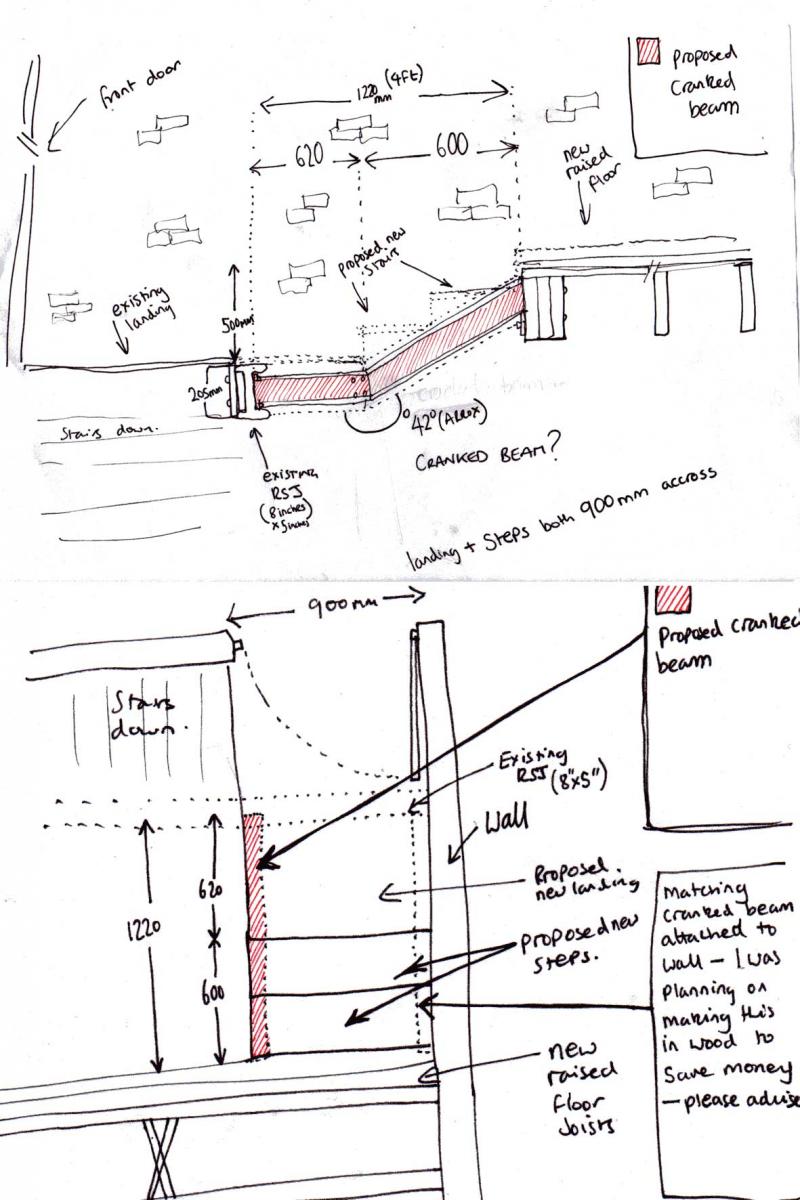 front door
1220 mm (4FT)
620
600
proposed
cranked
beam
new
raised
floor
proposed new
stairs
existing
landing
500mm
205mm
Stairs down.
42° (Approx)
CRANKED BEAM?
existing
RSJ
(8inches
x 5inches)
landing + Steps both 900mm accross
900mm
Proposed cranked
beam
Stairs
down.
Existing
RSJ (8"x5")
Wall
Proposed
new landing
620
1220
proposed new
steps.
600
new
raised
floor
Joists
Matching
cranked beam
attached to
wall - I was
planning on
making this
in wood to
save money
- please advise